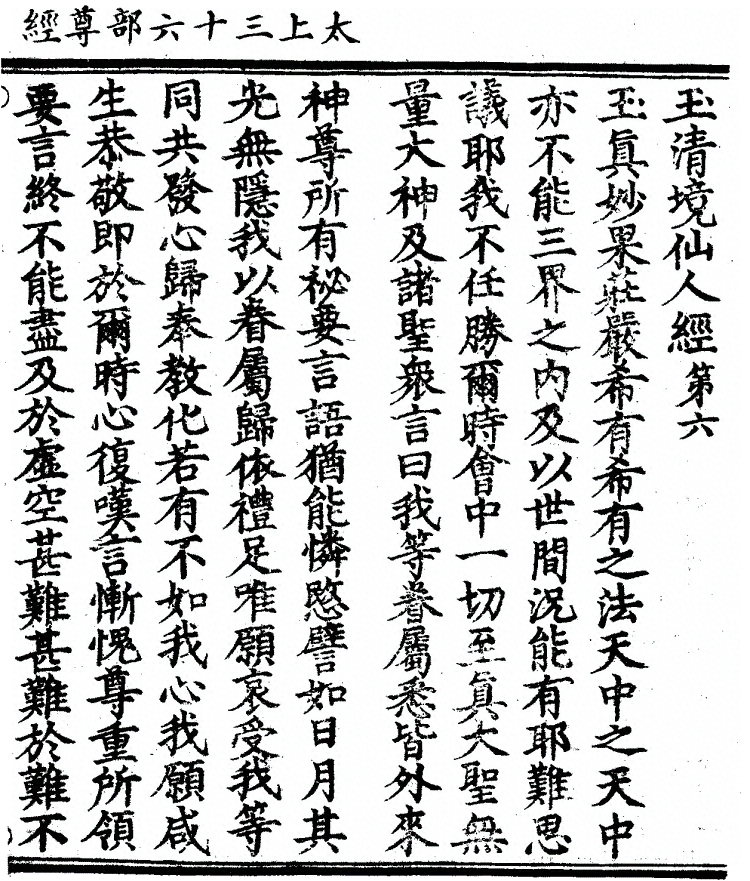 太上三十六部尊經
玉清境仙人經第六
玉眞妙果莊嚴希有希有之法天中之天中
亦不能三界之內及以世間況能有耶難思
議耶我不任勝爾時會中一切至眞大聖無
量大神及諸聖衆言曰我等眷屬悉皆外來
神尊所有祕要言語猶能憐愍譬如日月其
光無隱我以眷屬歸依禮足唯願哀受我等
同共發心歸奉教化若有不如我心我願咸
生恭敬即於爾時心復嘆言慚愧尊重所領
要言終不能盡及於虛空甚難甚難於難不